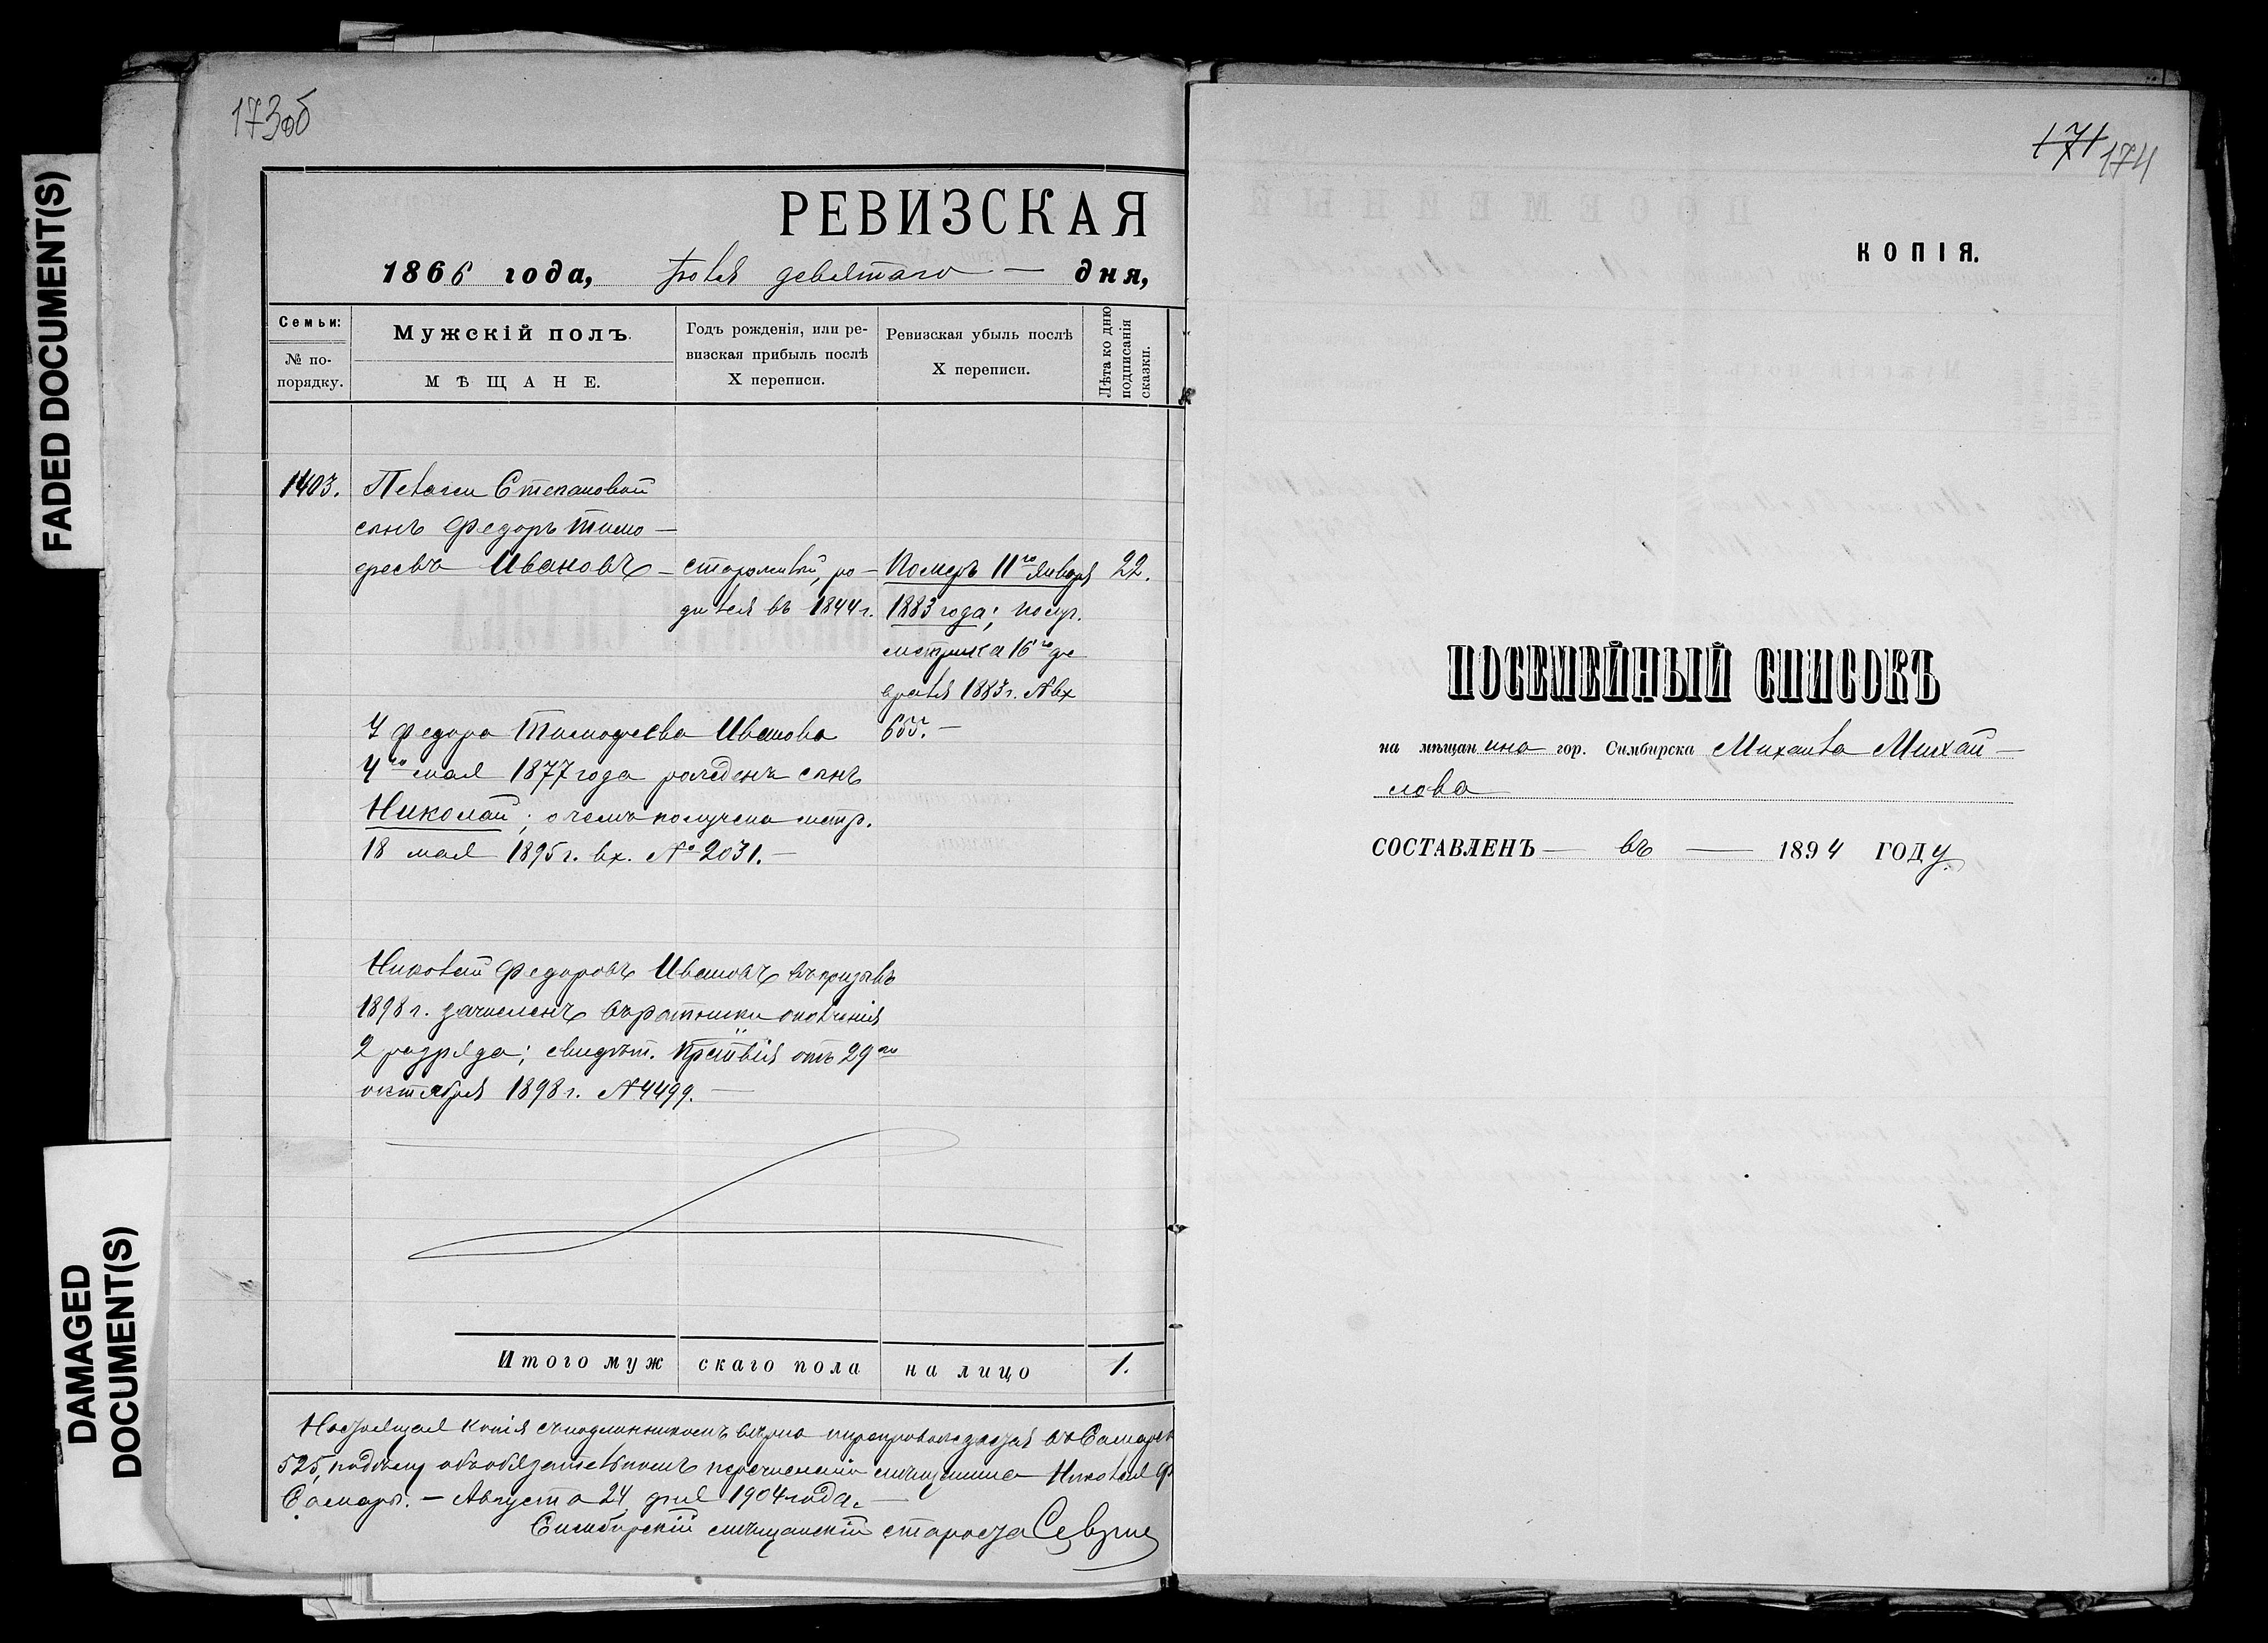 FADED DOCUMENT(S)
DAMAGED
DOCUMENT(S)
173об
РЕВИЗСКАЯ
1866 года, Іюля девятаго — дня,
Семьи:
№ по-
порядку.
Мужскій полъ.
МѢЩАНЕ.
Годъ рожденія, или ре-
визская прибыль послѣ
X переписи.
Ревизская убыль послѣ
X переписи.
Лѣта ко дню
подписанія
сказки.
1403. Пелагеи Степановой
сынъ Федоръ Тимо-
феевъ Ивановъ — сторожилый, ро- Померъ 11го Января 22.
дился въ 1844 г. 1883 года; получ.
метрика 16го фе
враля 1883 г. № вх
У Федора Тимофеева Иванова 655. —
4го мая 1877 года рожденъ сынъ
Николай; о чемъ получена метр.
18 мая 1895 г. вх. № 2031. —
Николай Федоровъ Ивановъ въ призывъ
1898 г. зачисленъ въ ратники ополченія
2 разряда; свидѣт. отъ 29го
октября 1898 г. № 4499. —
Итого мужскаго пола на лицо 1.
Настоящая копія съ подлинникомъ вѣрна и препровождается въ Самарск
525, подлеж обязательномъ перечисленіи мѣщанина Николая Ф
Самары. — Августа 24 дня 1904 года. —
Симбирскій мѣщанскій староста
171 174
КОПІЯ.
ПОСЕМЕЙНЫЙ СПИСОКЪ
на мѣщанина гор. Симбирска Михаила Михай-
лова
СОСТАВЛЕНЪ — въ — 1894 ГОДу.